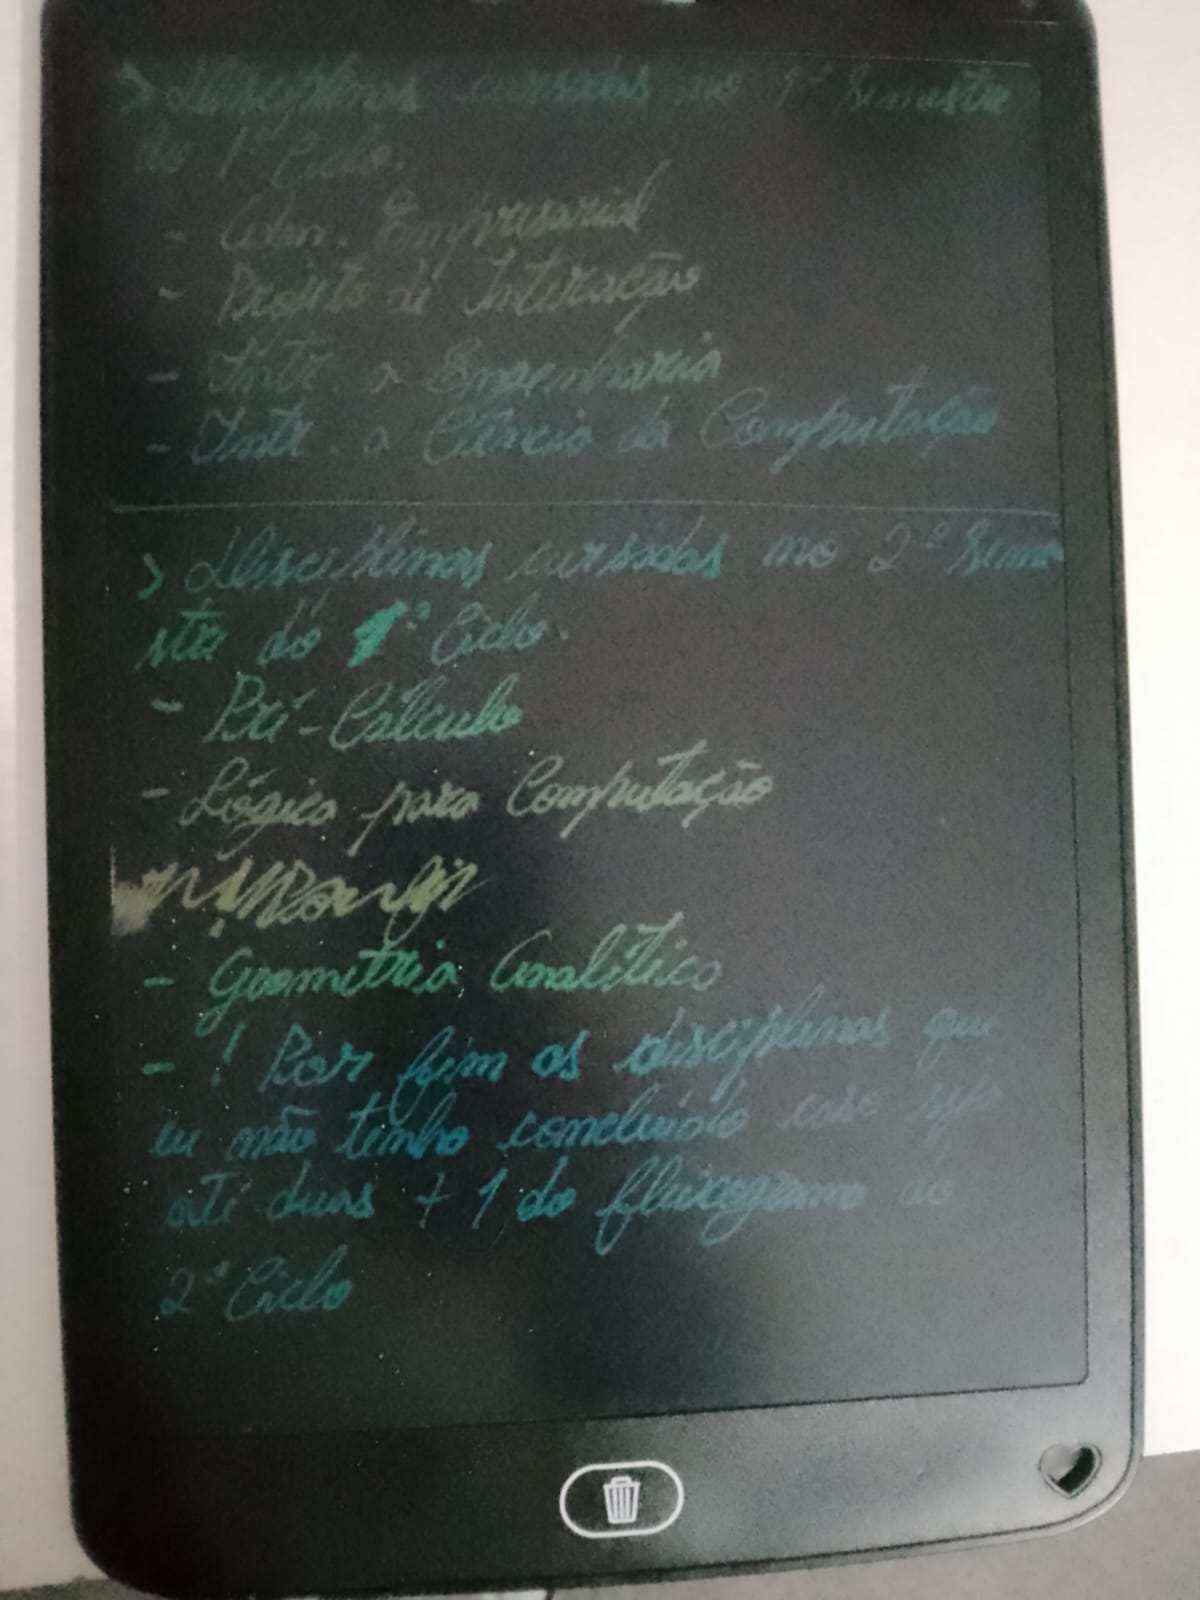 > Disciplinas cursadas no 1º Semestre
do 1º Ciclo.
- Adm. Empresarial
- Projeto de Interação
- Intr. a Engenharia
- Intr. a Ciência da Computação
> Disciplinas cursadas no 2º Seme
stre do 1º Ciclo.
- Pré-Cálculo
- Lógica para Computação
- Geometria Analítica
- ! Por fim as disciplinas que
eu não tenho concluido caso seja
até duas + 1 do fluxograma do
2º Ciclo